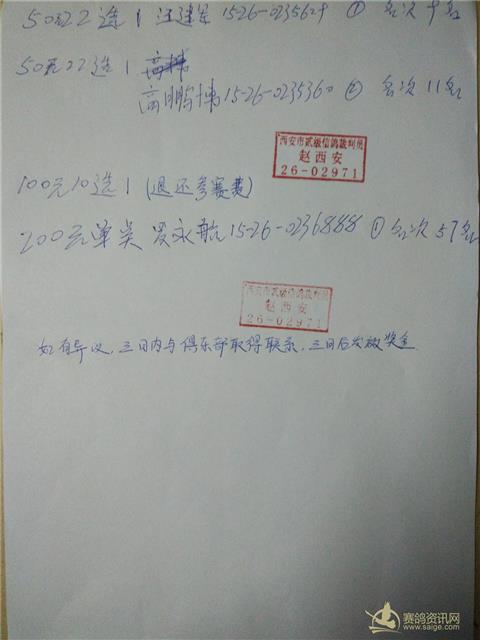 50元22选1 汪建军 15-26-0235629 ① 名次 9名
50元22选1
高鹏博 15-26-0235360 ② 名次 11名
西安市贰级信鸽裁判员
赵西安
26-02971
100元10选1 (退还参赛费)
200元单关 罗永航 15-26-0236888 ① 名次 57名
西安市贰级信鸽裁判员
赵西安
26-02971
如有异议,三日内与俱乐部取得联系,三日后发放奖金
赛鸽资讯网
www.saige.com